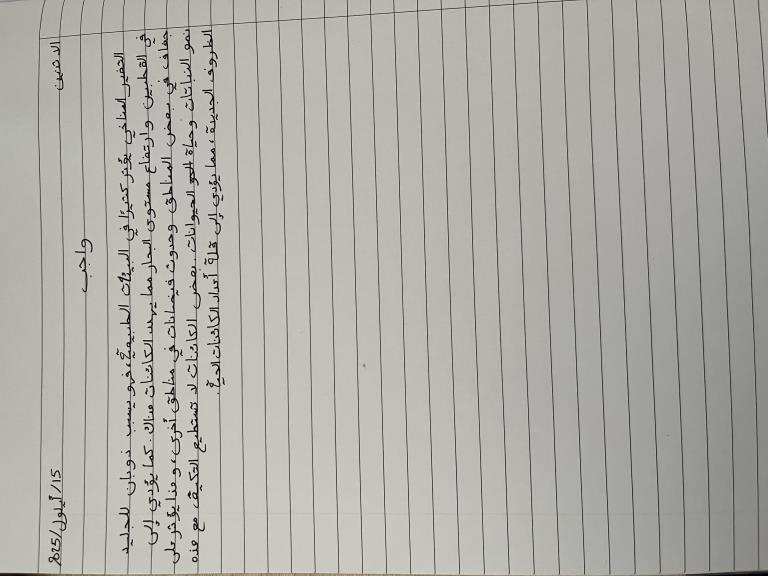 الاثنين
15/أيلول/2025
واجب
التغير المناخي يؤثر كثيرًا في البيئات الطبيعية، فهو يسبب ذوبان للجليد
في القطبين وارتفاع مستوى البحار مما يهدد الكائنات هناك. كما يؤدي إلى
جفاف في بعض المناطق وحدوث فيضانات في مناطق أخرى، و هذا يؤثر على
نمو النباتات وحياة الحيوانات. بعض الكائنات لا تستطيع التكيف مع هذه
الظروف الجديدة، مما يؤدي إلى قلة أعداد الكائنات الحية.